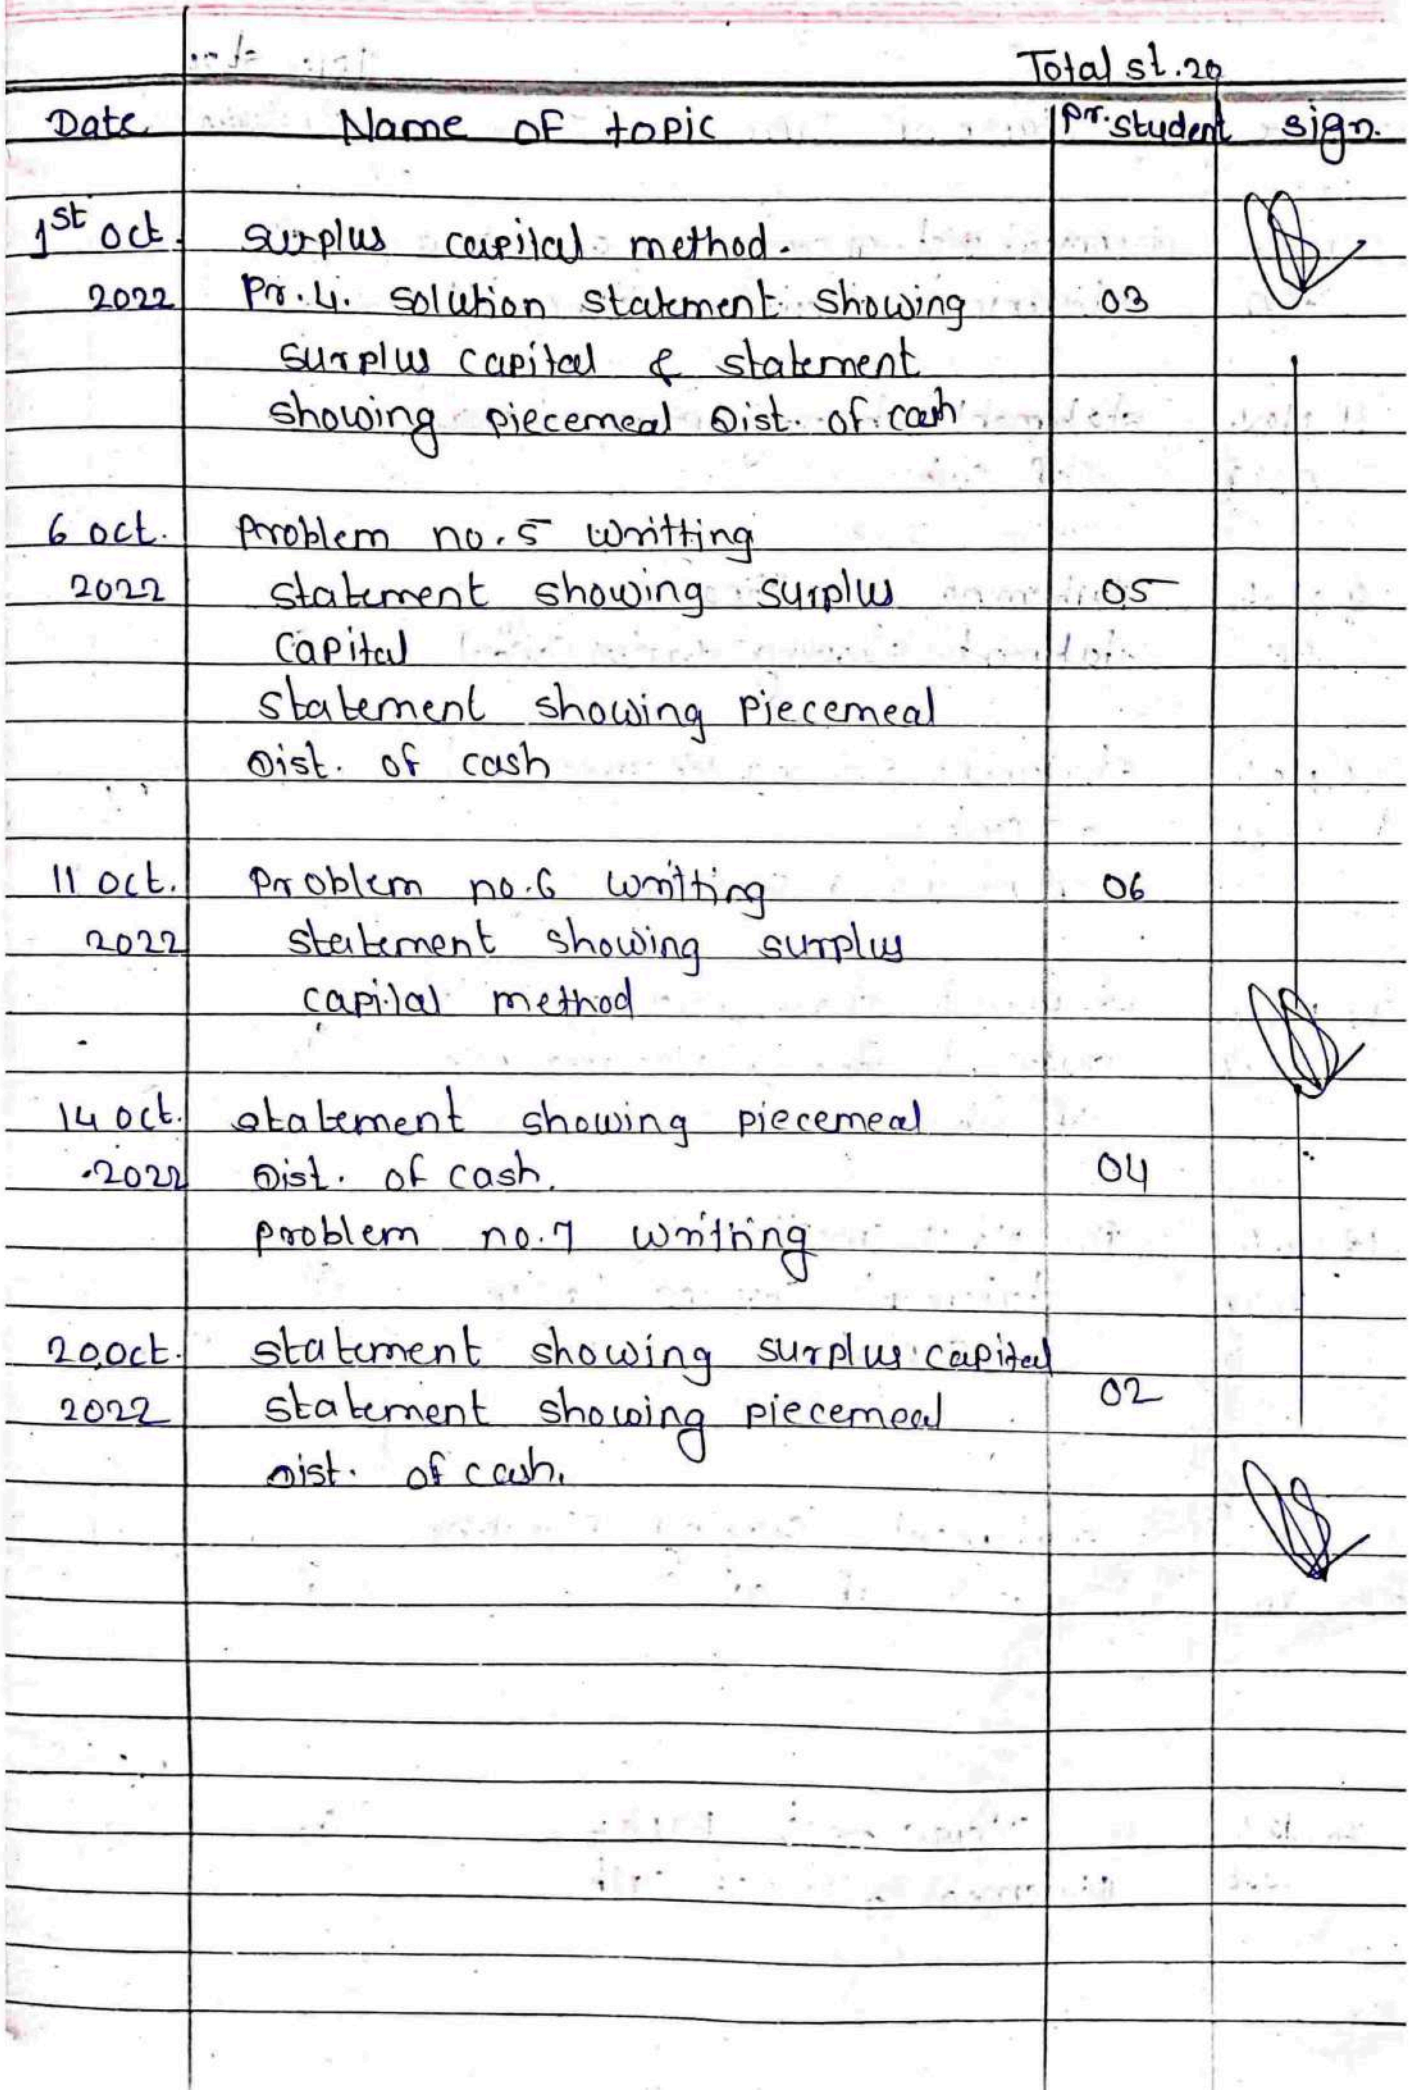 Total st. 20
Date Name of topic Pr. student sign.
1st oct. surplus capital method.
2022 Pr. 4. solution statement showing 03
surplus capital & statement
showing piecemeal Dist. of cash
6 oct. Problem no. 5 writting
2022 statement showing surplus 05
capital
statement showing piecemeal
Dist. of cash
11 oct. Problem no. 6 writting 06
2022 statement showing surplus
capital method
14 oct. statement showing piecemeal
2022 Dist. of cash. 04
problem no. 7 writting
20 oct. statement showing surplus capital
2022 statement showing piecemeal 02
Dist. of cash.